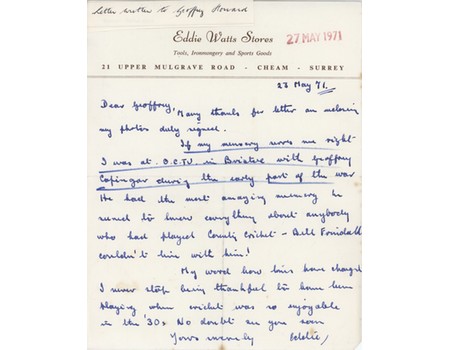 Letter written to Geoffrey Howard
Eddie Watts Stores
27 MAY 1971
Tools, Ironmongery and Sports Goods
21 UPPER MULGRAVE ROAD - CHEAM - SURREY
23 May 71.
Dear Geoffrey,
Many thanks for letter an
my photos duly signed.
If my memory serves me right
I was at O.C.T.U. in with Geoffrey
Copinger during the early part of the war
He had the most amazing memory he
seemed to know everything about anybody
who had played County Cricket - Bill Frindall
couldn't live with him!
My word how times have changed
I never stop being thankful to have been
playing when cricket was so enjoyable
in the '30s No doubt an you soon
Yours sincerely Eddie